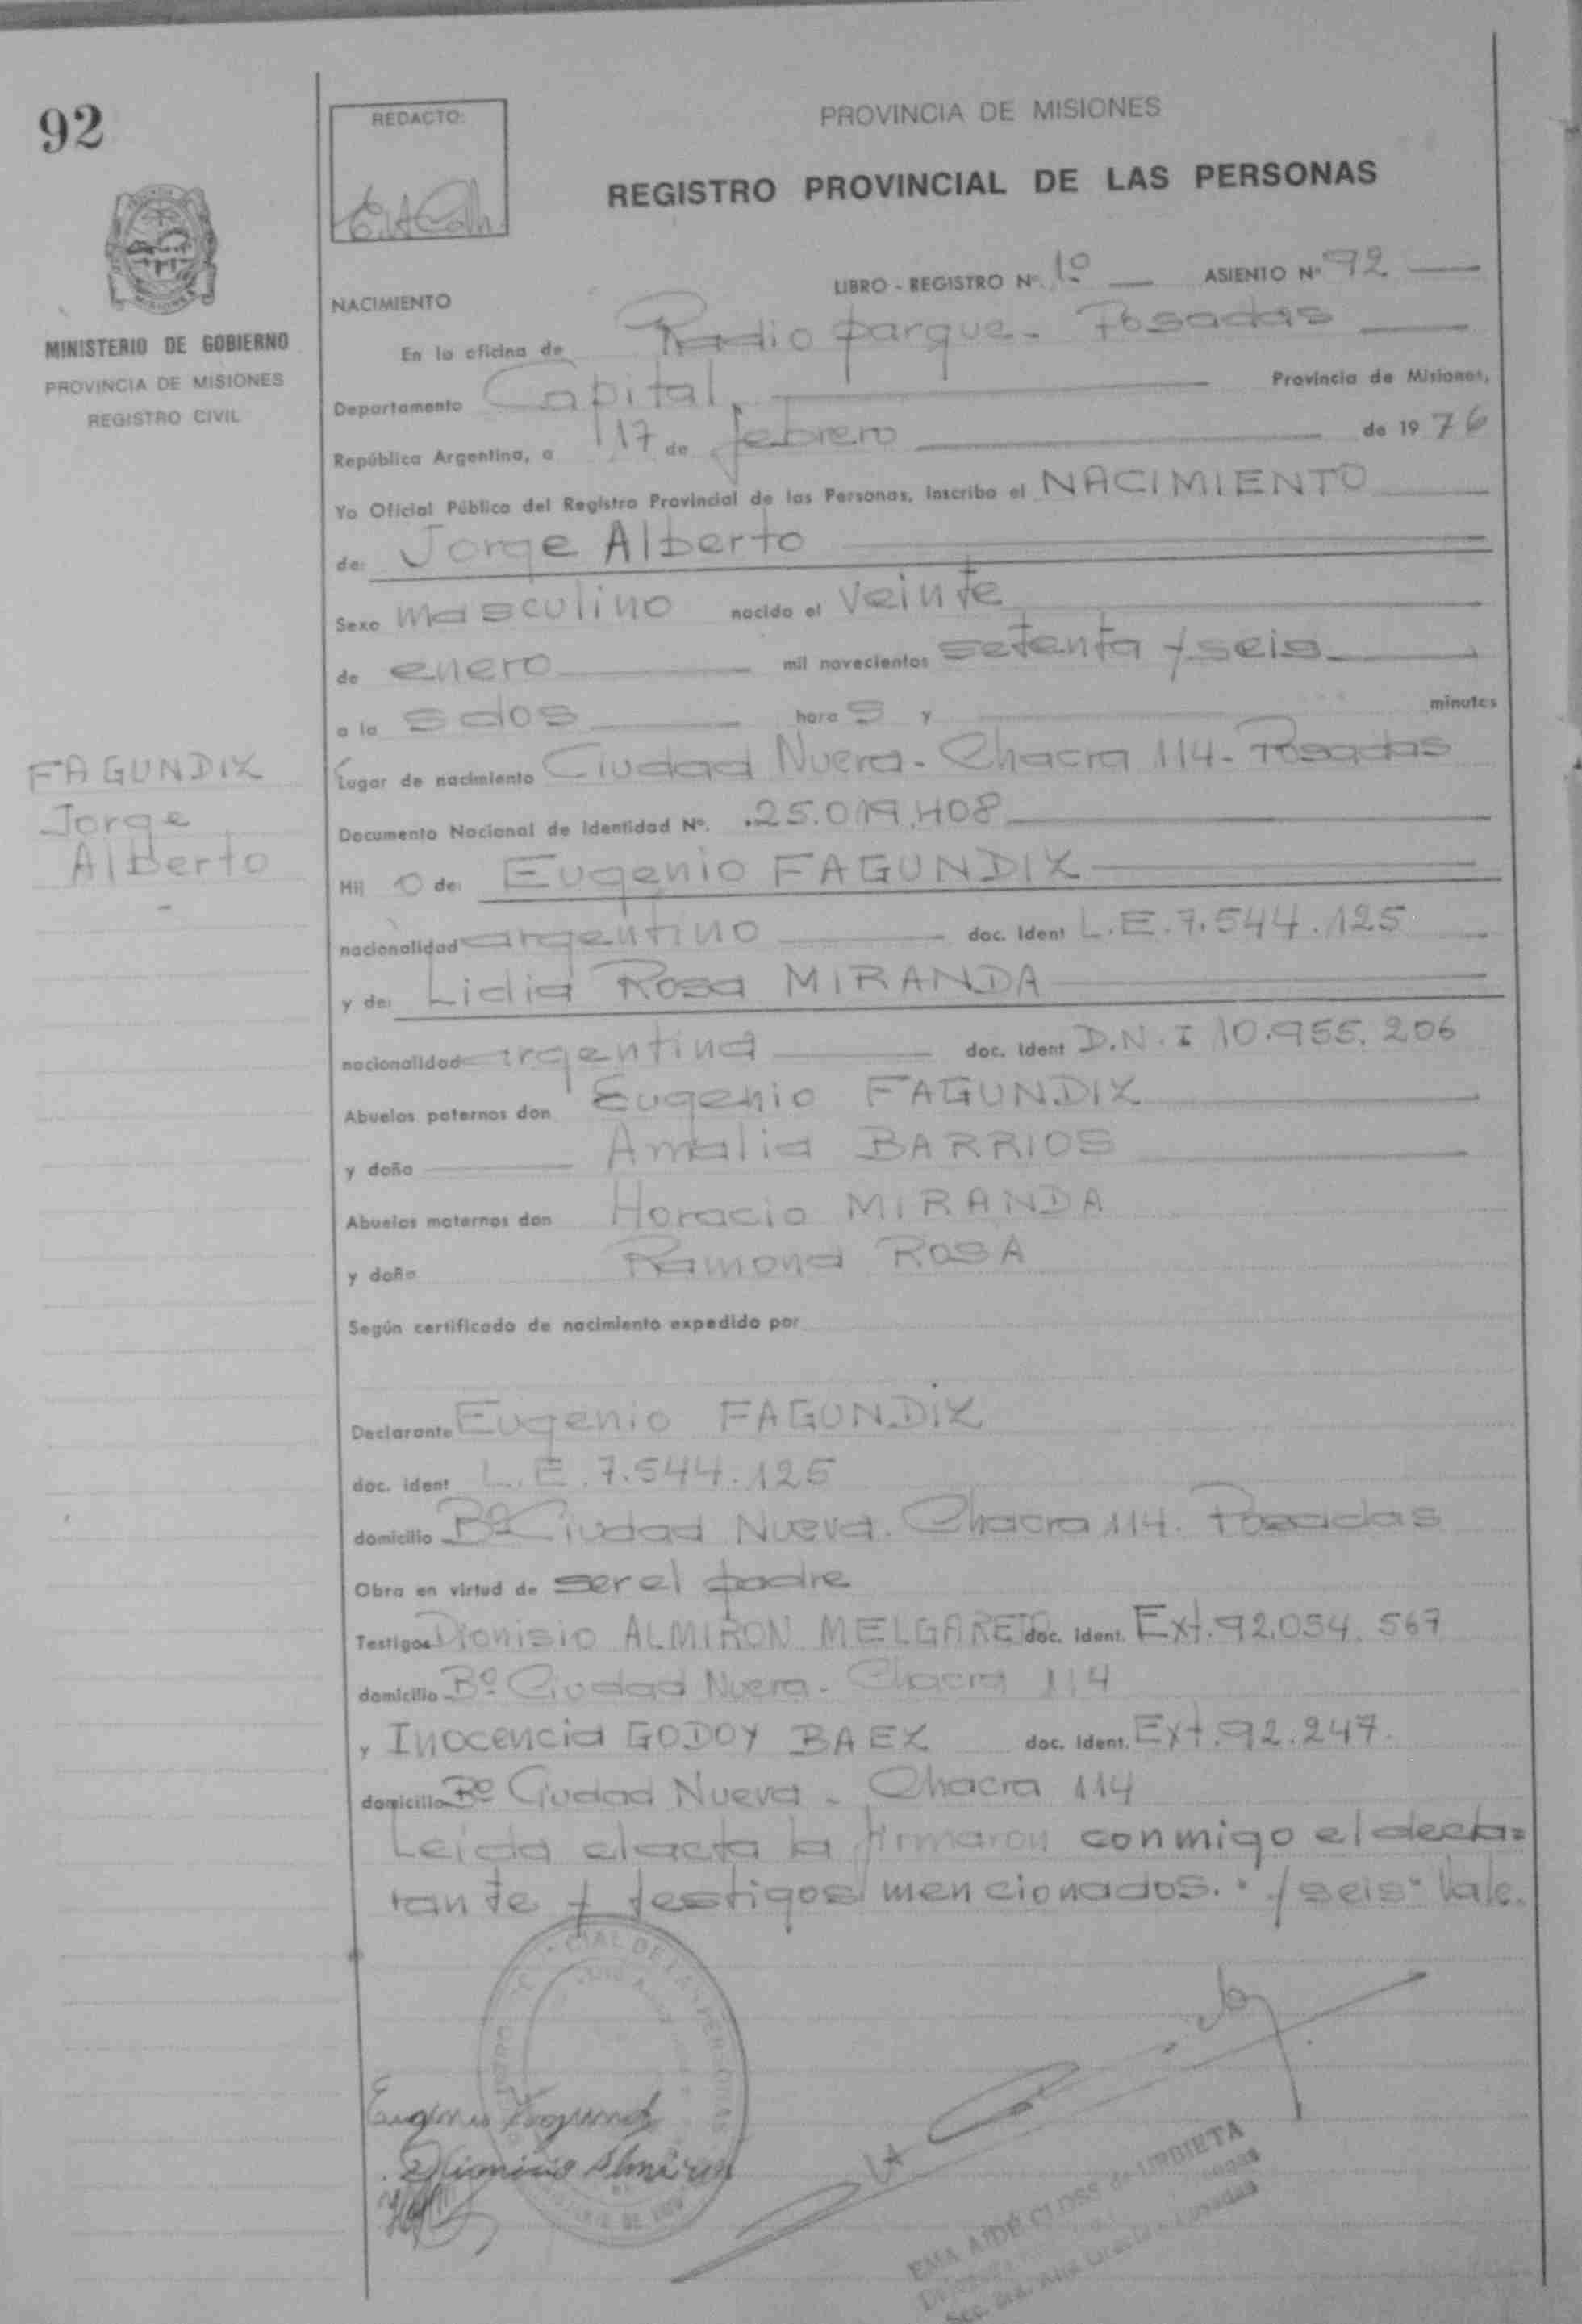 92
REDACTO:
PROVINCIA DE MISIONES
REGISTRO PROVINCIAL DE LAS PERSONAS
MINISTERIO DE GOBIERNO
PROVINCIA DE MISIONES
REGISTRO CIVIL
LIBRO - REGISTRO Nº. 1º ASIENTO Nº 92
NACIMIENTO
En la oficina de Radio parque - Posadas
Departamento Capital, Provincia de Misiones,
República Argentina, a 17 de febrero de 1976
Yo Oficial Público del Registro Provincial de las Personas, inscribo el NACIMIENTO
de: Jorge Alberto
Sexo masculino nacido el veinte
de enero mil novecientos setenta y seis
a la s dos hora s y minutos
FAGUNDIZ
Jorge
Alberto
Lugar de nacimiento Ciudad Nueva - Chacra 114 - Posadas
Documento Nacional de Identidad Nº. 25.019.408
Hij o de: Eugenio FAGUNDIZ
nacionalidad argentino doc. Ident L.E. 7.544.125
y de: Lidia Rosa MIRANDA
nacionalidad argentina doc. Ident D.N.I 10.955.206
Abuelos paternos don Eugenio FAGUNDIZ
y doña Amalia BARRIOS
Abuelos maternos don Horacio MIRANDA
y doña Ramona ROSA
Según certificado de nacimiento expedido por
Declarante Eugenio FAGUNDIZ
doc. ident L.E. 7.544.125
domicilio Bº Ciudad Nueva. Chacra 114. Posadas
Obra en virtud de ser el padre
Testigos Dionisio ALMIRON MELGAREJO doc. Ident. Ext. 92.054.567
domicilio Bº Ciudad Nueva - Chacra 114
y Inocencia GODOY BAEZ doc. Ident. Ext. 92.247.
domicilio Bº Ciudad Nueva - Chacra 114
Leida el acta la firmaron conmigo el decla=
rante y testigos mencionados. "y seis" Vale.
Eugenio Fagundiz
Dionisio Almiron
EMA AIDÉ CLOSS de URBIETA